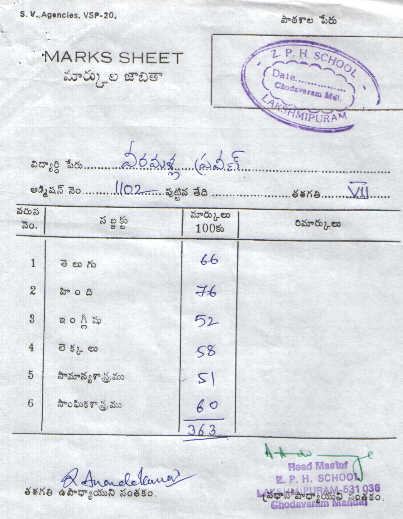 S. V., Agencies, VSP-20.
పాఠశాల పేరు
MARKS SHEET
మార్కుల జాబితా
Z. P. H. SCHOOL
Date
Chodavaram Mdl.
LAKSHMIPURAM
విద్యార్థి పేరు వీరమళ్ల ప్రవీణ్
అడ్మిషన్ నెం 1102 పుట్టిన తేది తరగతి VII
వరుస నెం. సబ్జక్టు మార్కులు 100కు రిమార్కులు
1 తెలుగు 66
2 హింది 76
3 ఇంగ్లీషు 52
4 లెక్కలు 58
5 సామాన్యశాస్త్రము 51
6 సాంఘికశాస్త్రము 60
363
R Anandakumar
Head Master
Z. P. H. SCHOOL
LAKSHMIPURAM-531 036
Chodavaram Mandal
తరగతి ఉపాధ్యాయుని సంతకం. ప్రధానోపాధ్యాయుని సంతకం.